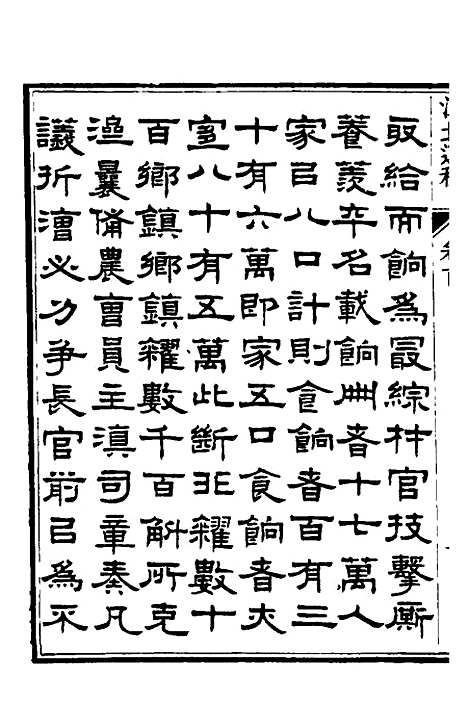 取給而餉爲冣綜材官技擊廝
養羨卒名載餉冊者十七萬人
家㠯八口計則食餉者百有三
十有六萬即家五口食餉者亦
至八十有五萬此斷非糴數十
百鄉鎮鄉鎮糴數千百斛所克
濟曩備農曹員主滇司章奏凡
議折漕必力争長官前㠯爲不